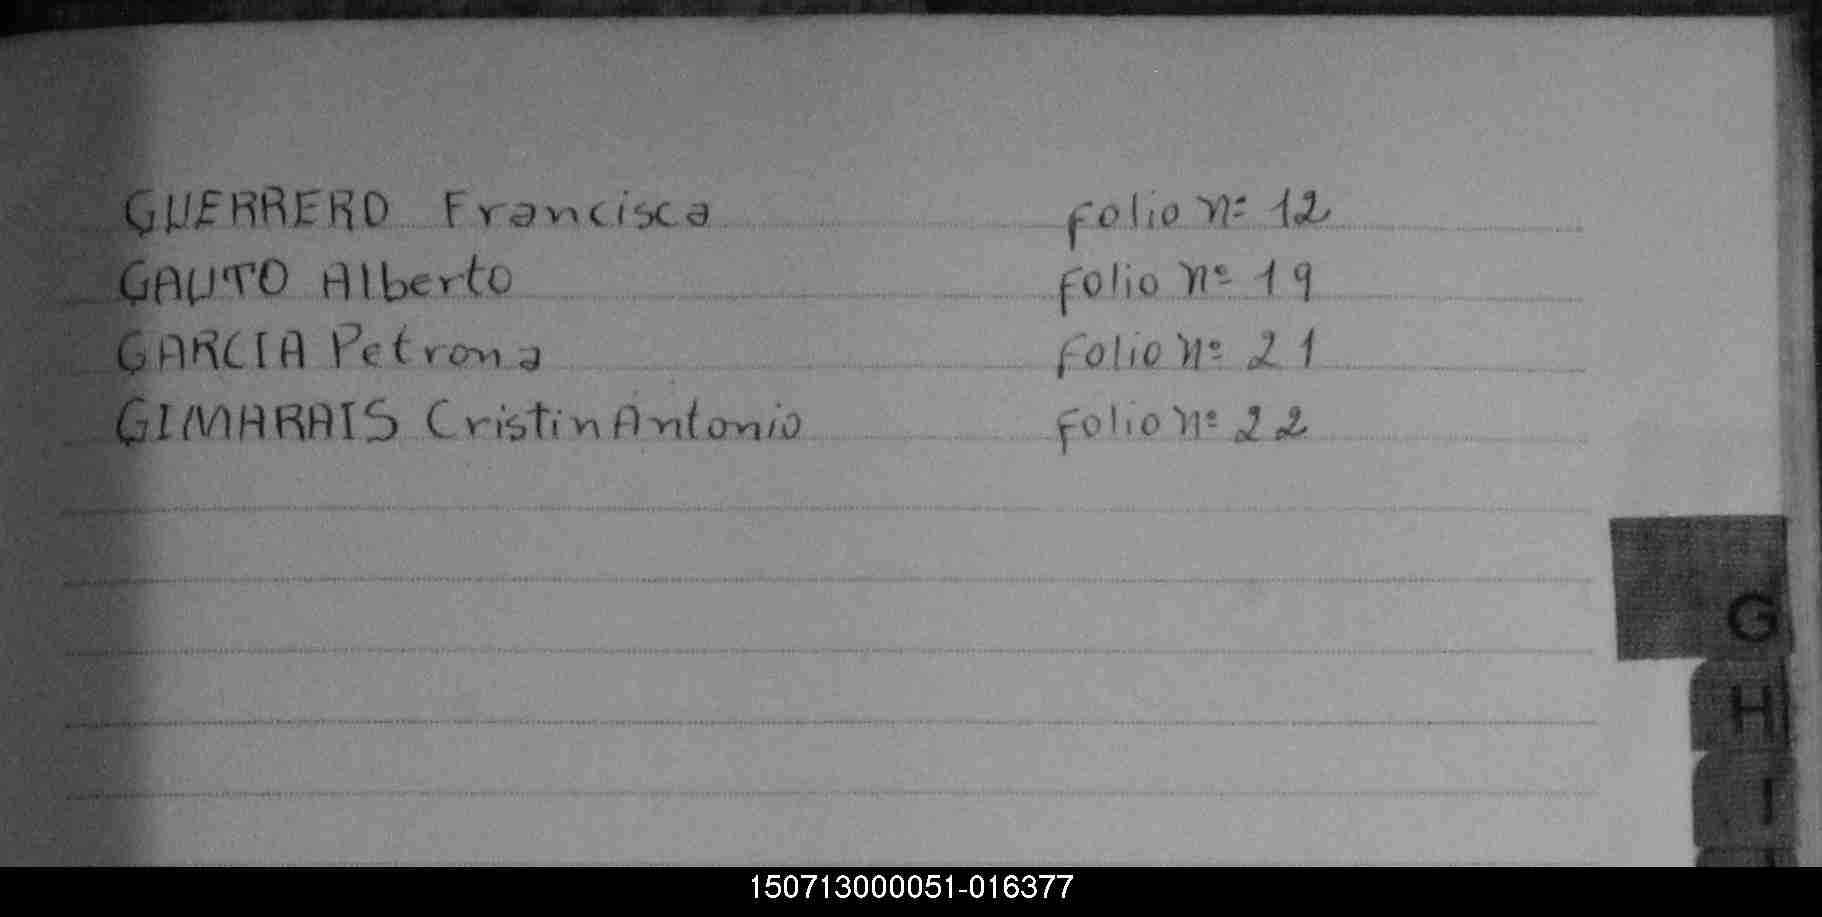 GUERRERO Francisca folio nº 12
GAUTO Alberto folio nº 19
GARCIA Petrona folio nº 21
GIMARAIS Cristin Antonio folio nº 22
G
H
I
150713000051-016377